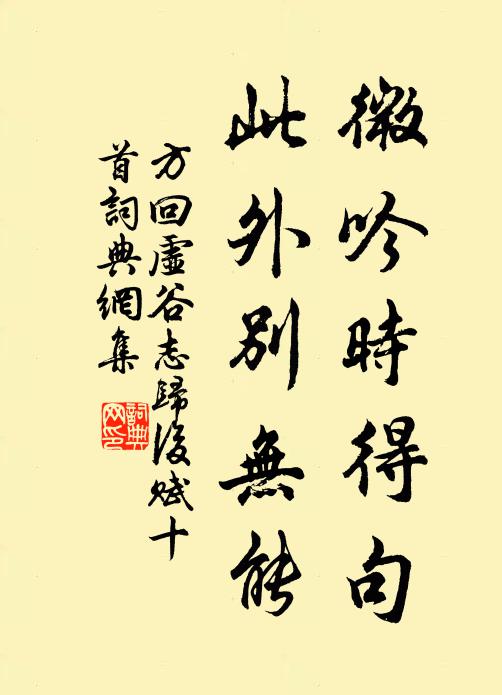 微吟時得句
此外別無能
方回虛谷志歸後賦十
首詞典網集
詞典
网印